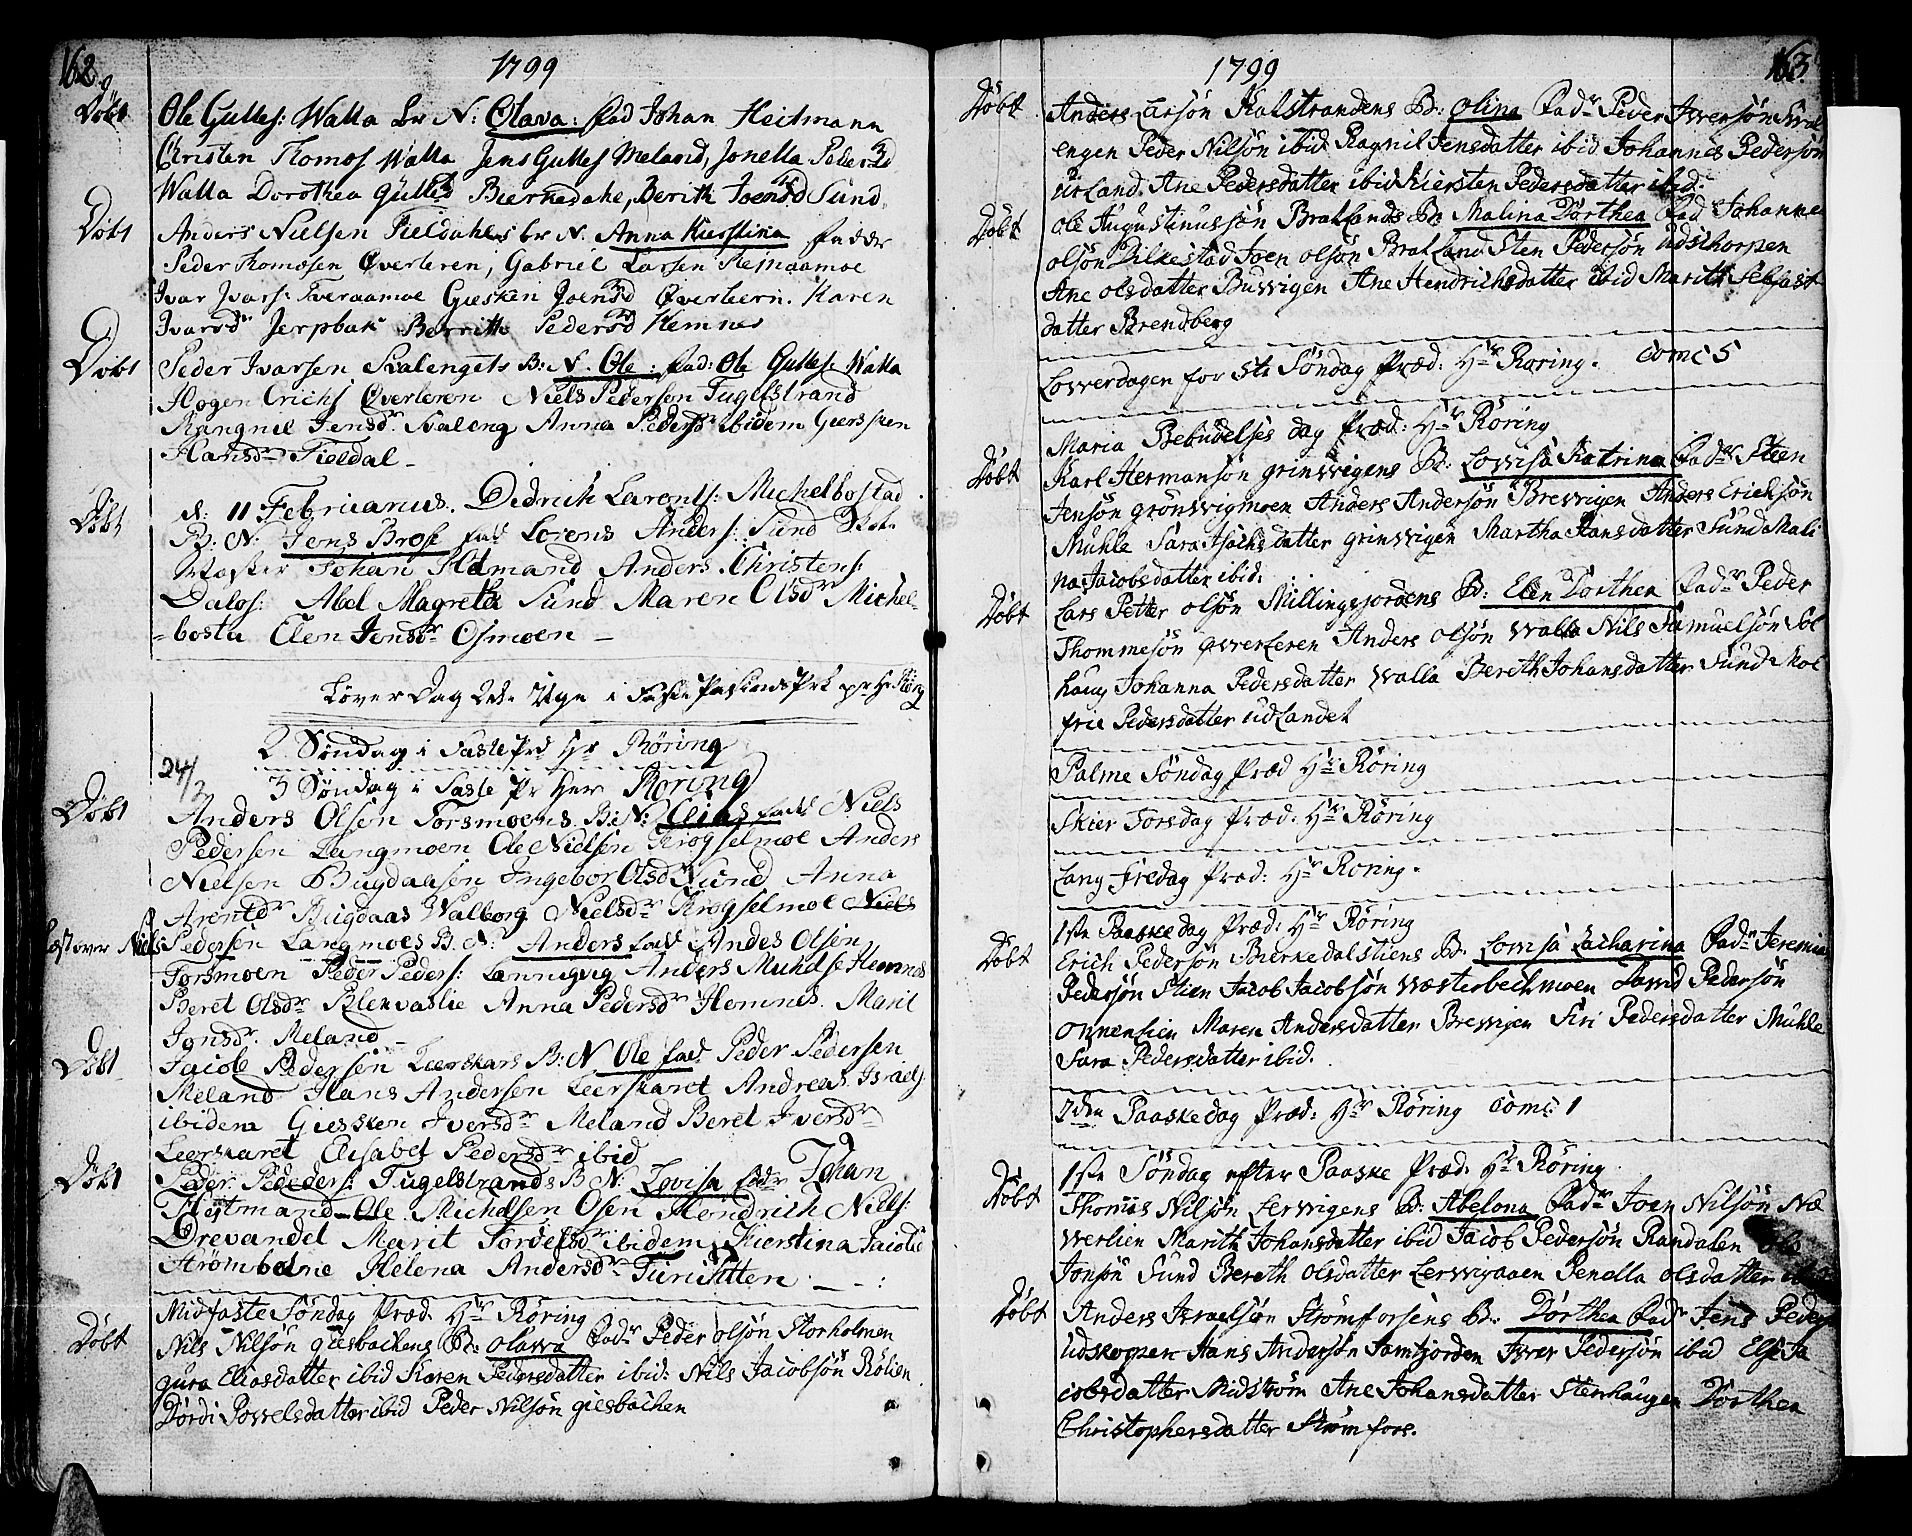 162
1799
Døbt
Ole Gulles: Walla br N: Olava: fad Johan Heitmann
Christen Thomos Walla Jens Gulles Meland, Jonella Pedersd
Walla Dorothea Gulles Bierkedahe, Berith Joensd Sund
Døbt
Anders Nielsen Fieldahls br N. Anna Kierstina fadder
Peder Thomosen Øverleren, Gabriel Larsen Stejnaamoe
Ivar Ivars: Tveraamoe Giesken Joensd Øverleern. Karen
Ivarsdr Jerpbak Berrith Pedersd Hemnes
Døbt
Peder Ivarsen Svalengets B: N. Ole: fad: Ole Gulles: Walla
Hogen Erichs Øverleren Niels Pedersen Fuglstrand
Rangnil Jensdr. Svaleng Anna Pedersdr ibidem Giersken
Hansdr Fieldal
Døbt
d: 11 Februarius. Didrich Larents: Michelbostad
B: N: Jens Brose fad Lorens Anders: Sund Skole
Mæster Johan Hetmand Anders Christens:
Dalos: Abel Magreta Sund Maren Olsdr Michel-
-bosta Elen Jensdr Osmoen
Løver Dag 2de Uge i Faste Pasions Prk pr Hr Røring
2 Søndag i Faste Prd Hr Røring
24/2
3 Søndag i Faste Pr Herr Røring
Døbt
Anders Olsen Forsmoens B: N: Elias fad: Niels
Pedersen Langmoen Ole Nielsen Krogselmoe Anders
Nielsen Bugdaasen Ingebor Olsdr Sund Anna
Arentdr Bugdaas Walborg Nielsdr Krogselmoe Niels
Læst over Niels Pedersen Langmoes B. N: Anders fad Andes Olsen
Forsmoen Peder Peders: Lænnigvig Anders Muhds Hemnes
Beret Olsdr Blenvaslie Anna Pedersdr Hemnes. Marit
Jonsdr. Meland
Døbt
Jacob Pedersen Leerskars B: N Ole fad: Peder Pedersen
Meland Hans Andersen Leerskaret Andreas Israels
ibidem Giesken Iversdr Meland Beret Iversdr
Leerskaret Elisabet Pedersdr ibid
Døbt
Peder Pededers: Fugelstrands B N: Lovisa fadr Johan
Hejtmand Ole Michelsen Osen Hendrich Niels:
Drevandet Marit Tordelsdr ibidem Kierstina Jacobs
Strømbotne Helena Andersdr
Midfaste Søndag Præd. Hr Røring
Døbt
Nils Nilsøn giesbackens B: olava Fadr Peder olsøn Storholmen
gura Eliasdatter ibid Karen Pedersdatter ibid: Nils Jacobsøn Rølien
Dordi Powelsdatter ibid Peder Nilsøn giesbachen
163
1799
Døbt
Anders Larsøn Kalstrandens B: olina Fadr Peder Iversøn Sval
engen Peder Nilsøn ibid Ragnil Jensdatter ibid Johannes Pedersøn
urland. Ane Pedersdatter ibid Kiersten Pedersdatter ibid:
Døbt
ole Augustinussøn Bratlands B: Malina Dorthea Fad Johannes
olsøn Dilkestad Joen olsøn Bratland Sten Pedersøn udskorpen
Ane olsdatter Buvigen Ane Hendrichsdatter ibid Marith Sebjast
datter Brendberg
Loverdagen for 5te Søndag Præd: Hr Røring. Com: 5
Maria Bebudelses dag Præd: Hr Røring
Døbt
Karl Hermansøn grinvigens B: Lowisa Katrina Fadr Steen
Jensøn grønsvigmoen Anders Andersøn Brevigen Anders Erichsøn
Muhle Sara Isachsdatter grinvigen Martha Hansdatter Sund Mali
na Jacobsdatter ibid:
Døbt
Lars Petter olsøn Millingsjordens B: Elen Dorthea Fadr Peder
Thommesøn øverleren Anders olsøn walla Nils Samuelsøn Sol
haug Johanna Pedersdatter Walla Bereth Johansdatter Sund Mol
frie Pedersdatter udlandet
Palme Søndag Præd Hr Røring
Skier Torsdag Præd: Hr Røring
Lang Fredag Præd: Hr Røring.
1ste Paaske dag Præd: Hr Røring
Døbt
Erich Pedersøn Bierkedalstiens B: Lowisa Zacharina Fadr Jeremias
Pedersøn Stien Jacob Jacobsøn Wæsterbechmoen David Pedersøn
onnenlien Maren Andersdatter Brevigen Siri Pedersdatter Muhle
Sara Pedersdatter ibid.
2den Paaskedag Præd: Hr Røring Com: 1
1ste Søndag efter Paaske Præd: Hr Røring
Døbt
Thomas Nilsøn Lervigens B: Abelona Fadr Joen Nilsøn Næ
verlien Marith Johansdatter ibid Jacob Pedersøn Randalen ole
Jonsøn Sund Bereth olsdatter Lervigaaen Penella olsdatter ibid
Døbt
Anders Israelsøn Strømforsens B: Dorthea Fadr Jens Peders
Udskorpen Hans Andersøn Samfjorden Iver Pedersøn ibid Else Ja
cobsdatter Midstrøm Ane Johansdatter Stenhaugen Dorthea
Christophersdatter Strømfors.